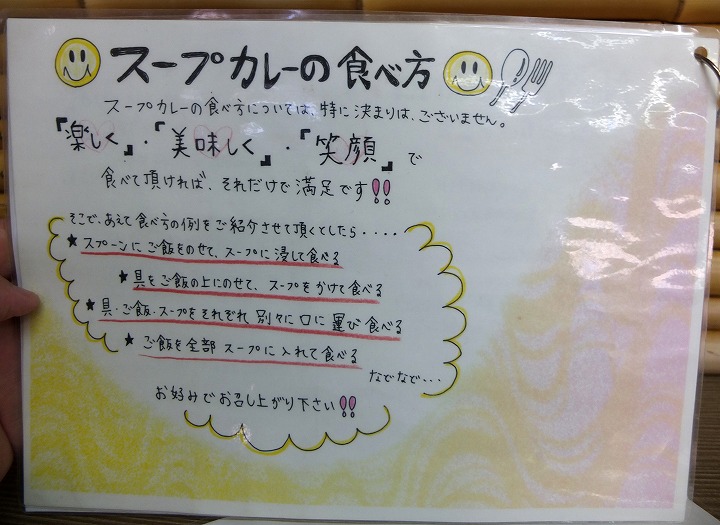 スープカレーの食べ方
スープカレーの食べ方については、特に決まりは、ございません。
『楽しく』・『美味しく』・『笑顔』で
食べて頂ければ、それだけで満足です!!
そこで、あえて食べ方の例をご紹介させて頂くてしたら・・・・
★スプーンにご飯をのせて、スープに浸して食べる
★具をご飯の上にのせて、スープをかけて食べる
★具・ご飯・スープをそれぞれ別々に口に運び食べる
★ご飯を全部スープに入れて食べる
などなど・・・
お好みでお召し上がり下さい!!